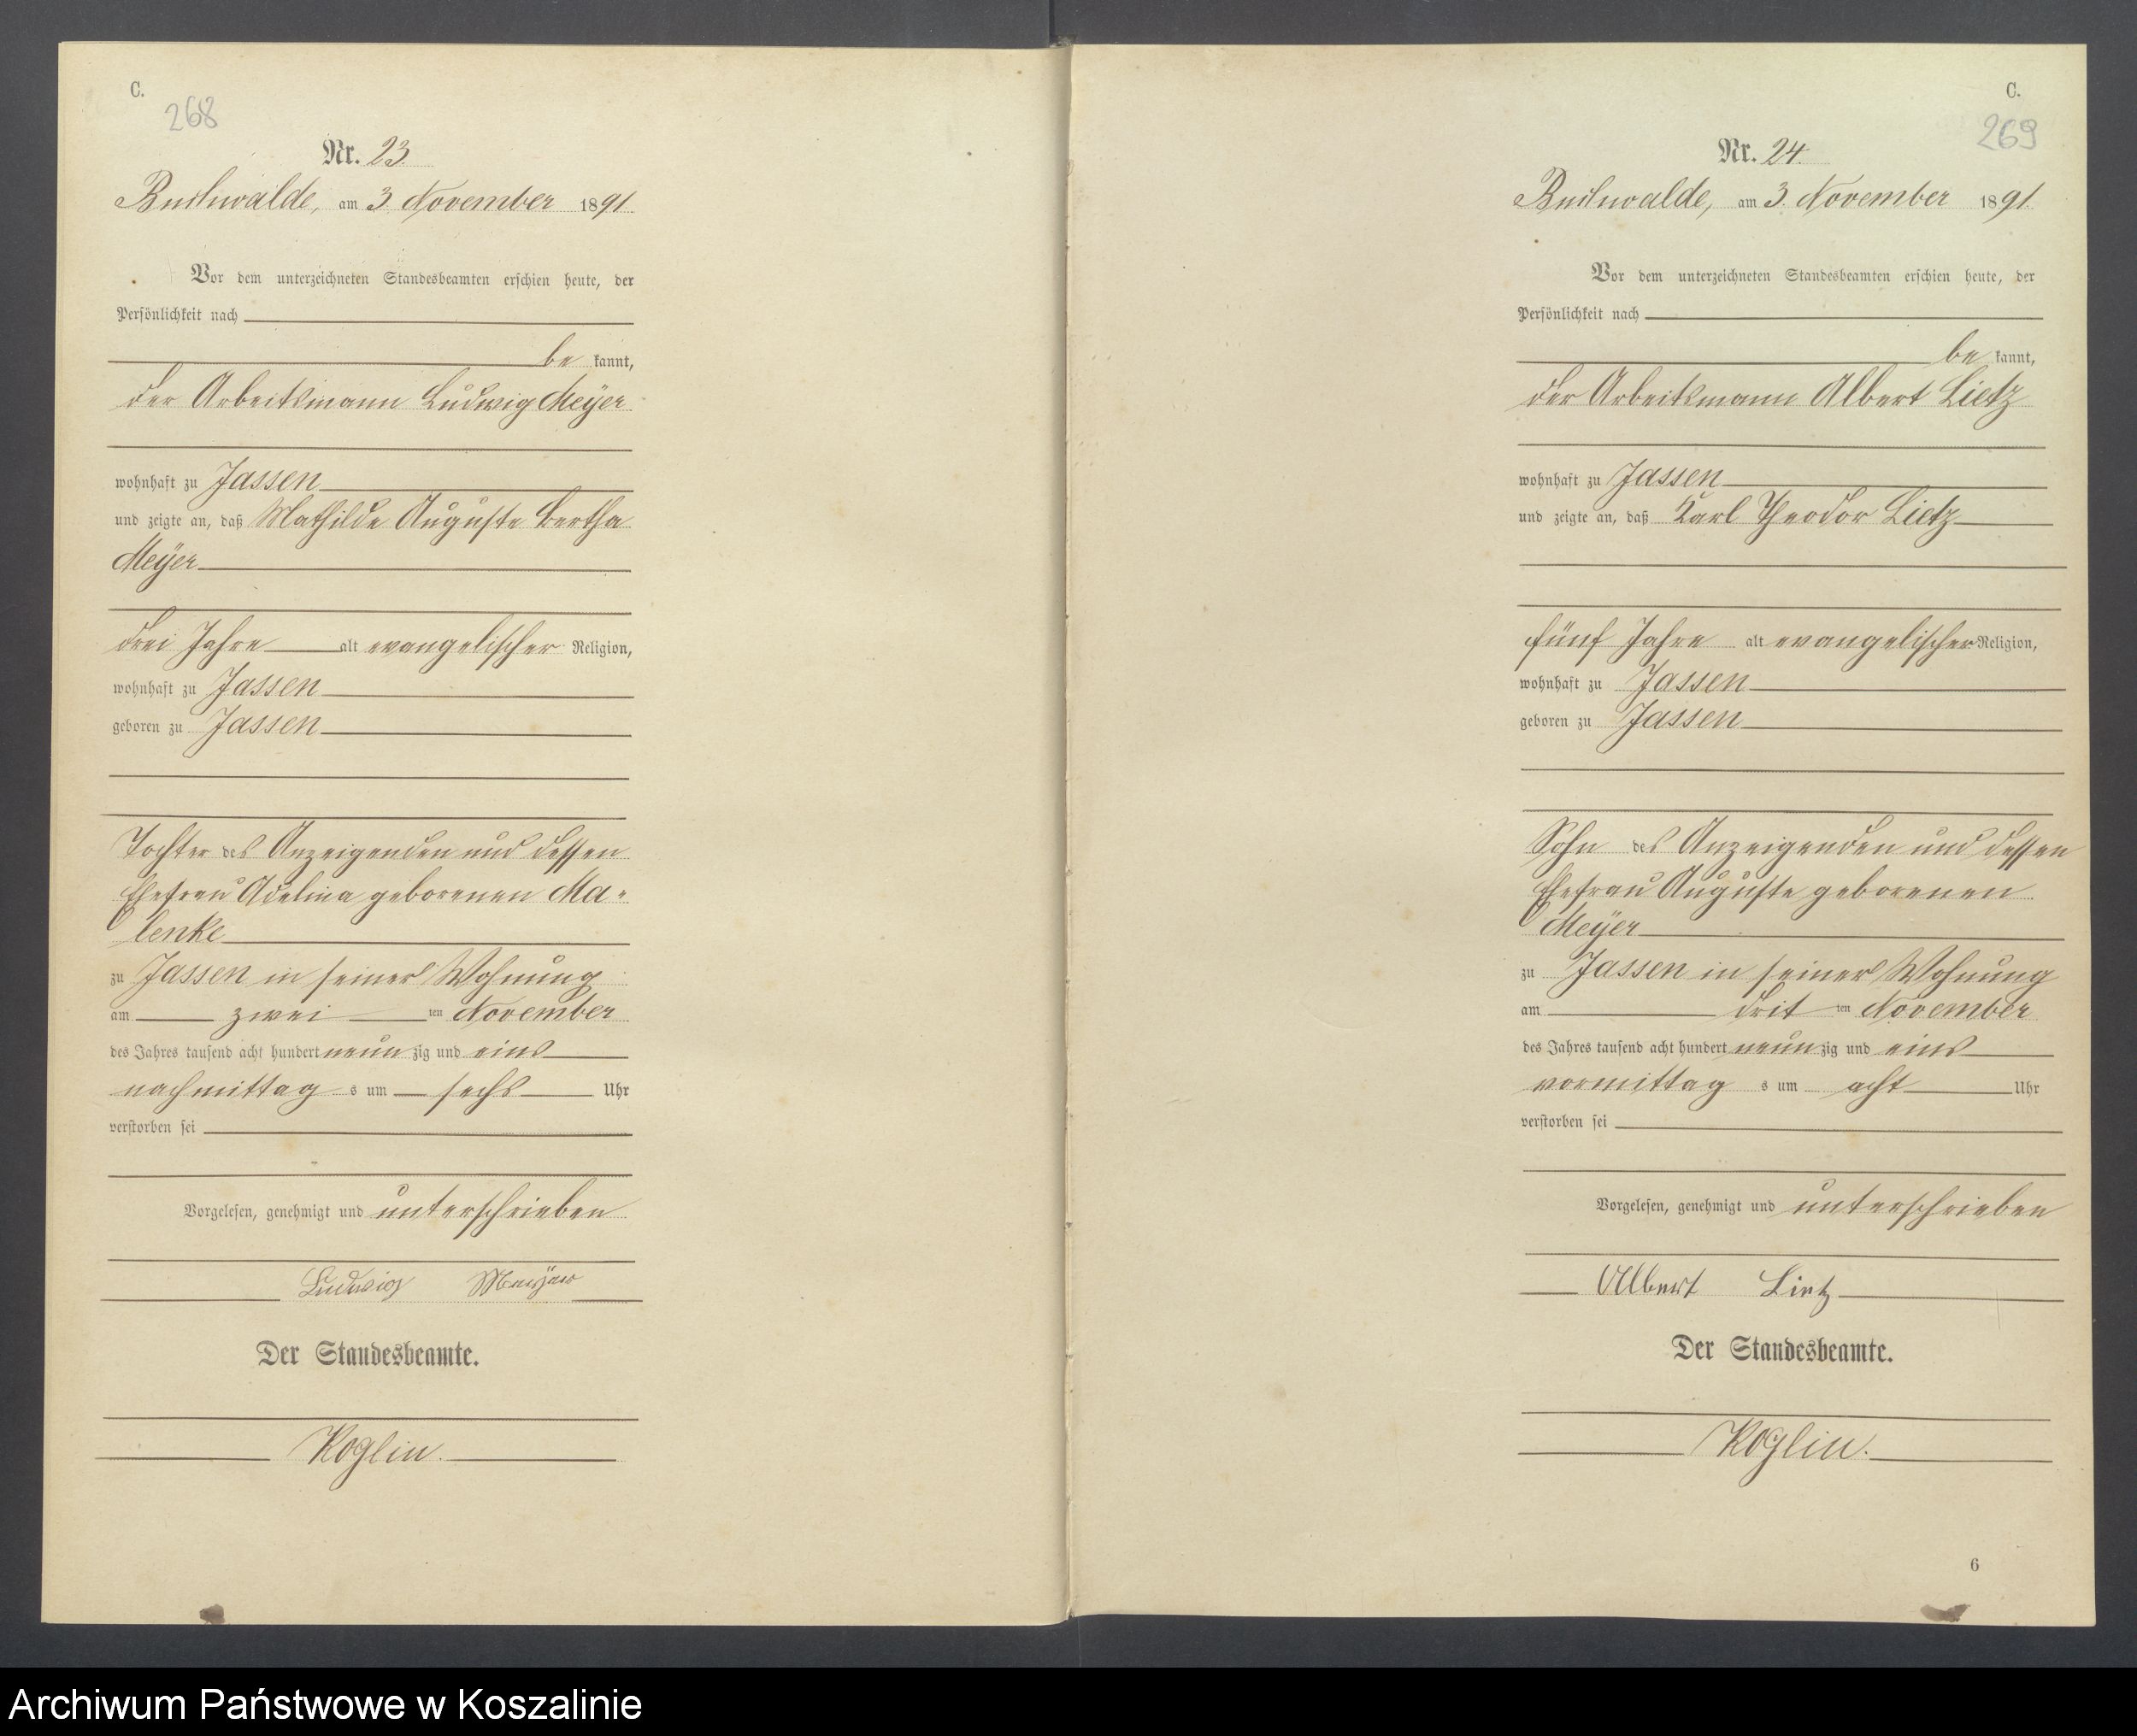 C.
268
Nr. 23
Buchwalde, am 3 November 1891.
Vor dem unterzeichneten Standesbeamten erschien heute, der
Persönlichkeit nach
be kannt,
der Arbeitsmann Ludwig Meÿer
wohnhaft zu Jassen
und zeigte an, daß Mathilde Auguste Bertha
Meÿer
drei Jahre alt evangelischer Religion,
wohnhaft zu Jassen
geboren zu Jassen
Tochter des Anzeigenden und dessen
Ehefrau Adeline geborenen Ma-
lenke
zu Jassen in seiner Wohnung
am zwei ten November
des Jahres tausend acht hundert neun zig und eins
nachmittag s um sechs Uhr
verstorben sei
Vorgelesen, genehmigt und unterschrieben
Ludwig
Der Standesbeamte.
Koglin.
C.
269
Nr. 24.
Buchwalde, am 3. November 1891
Vor dem unterzeichneten Standesbeamten erschien heute, der
Persönlichkeit nach
be kannt,
der Arbeitsmann Albert Lietz
wohnhaft zu Jassen
und zeigte an, daß Karl Theodor Lietz
fünf Jahre alt evangelischer Religion,
wohnhaft zu Jassen
geboren zu Jassen
Sohn des Anzeigenden und dessen
Ehefrau Auguste geborenen
Meÿer
zu Jassen in seiner Wohnung
am drit ten November
des Jahres tausend acht hundert neun zig und eins
vormittag s um acht Uhr
verstorben sei
Vorgelesen, genehmigt und unterschrieben
Albert Lietz
Der Standesbeamte.
Koglin.
6
Archiwum Państwowe w Koszalinie